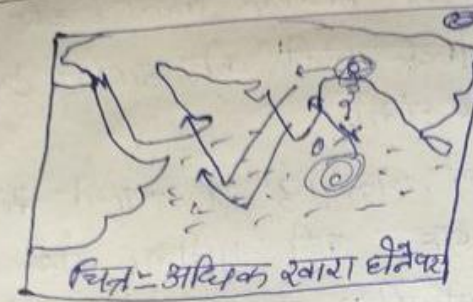 चित्र = अधिक खारा होने पर